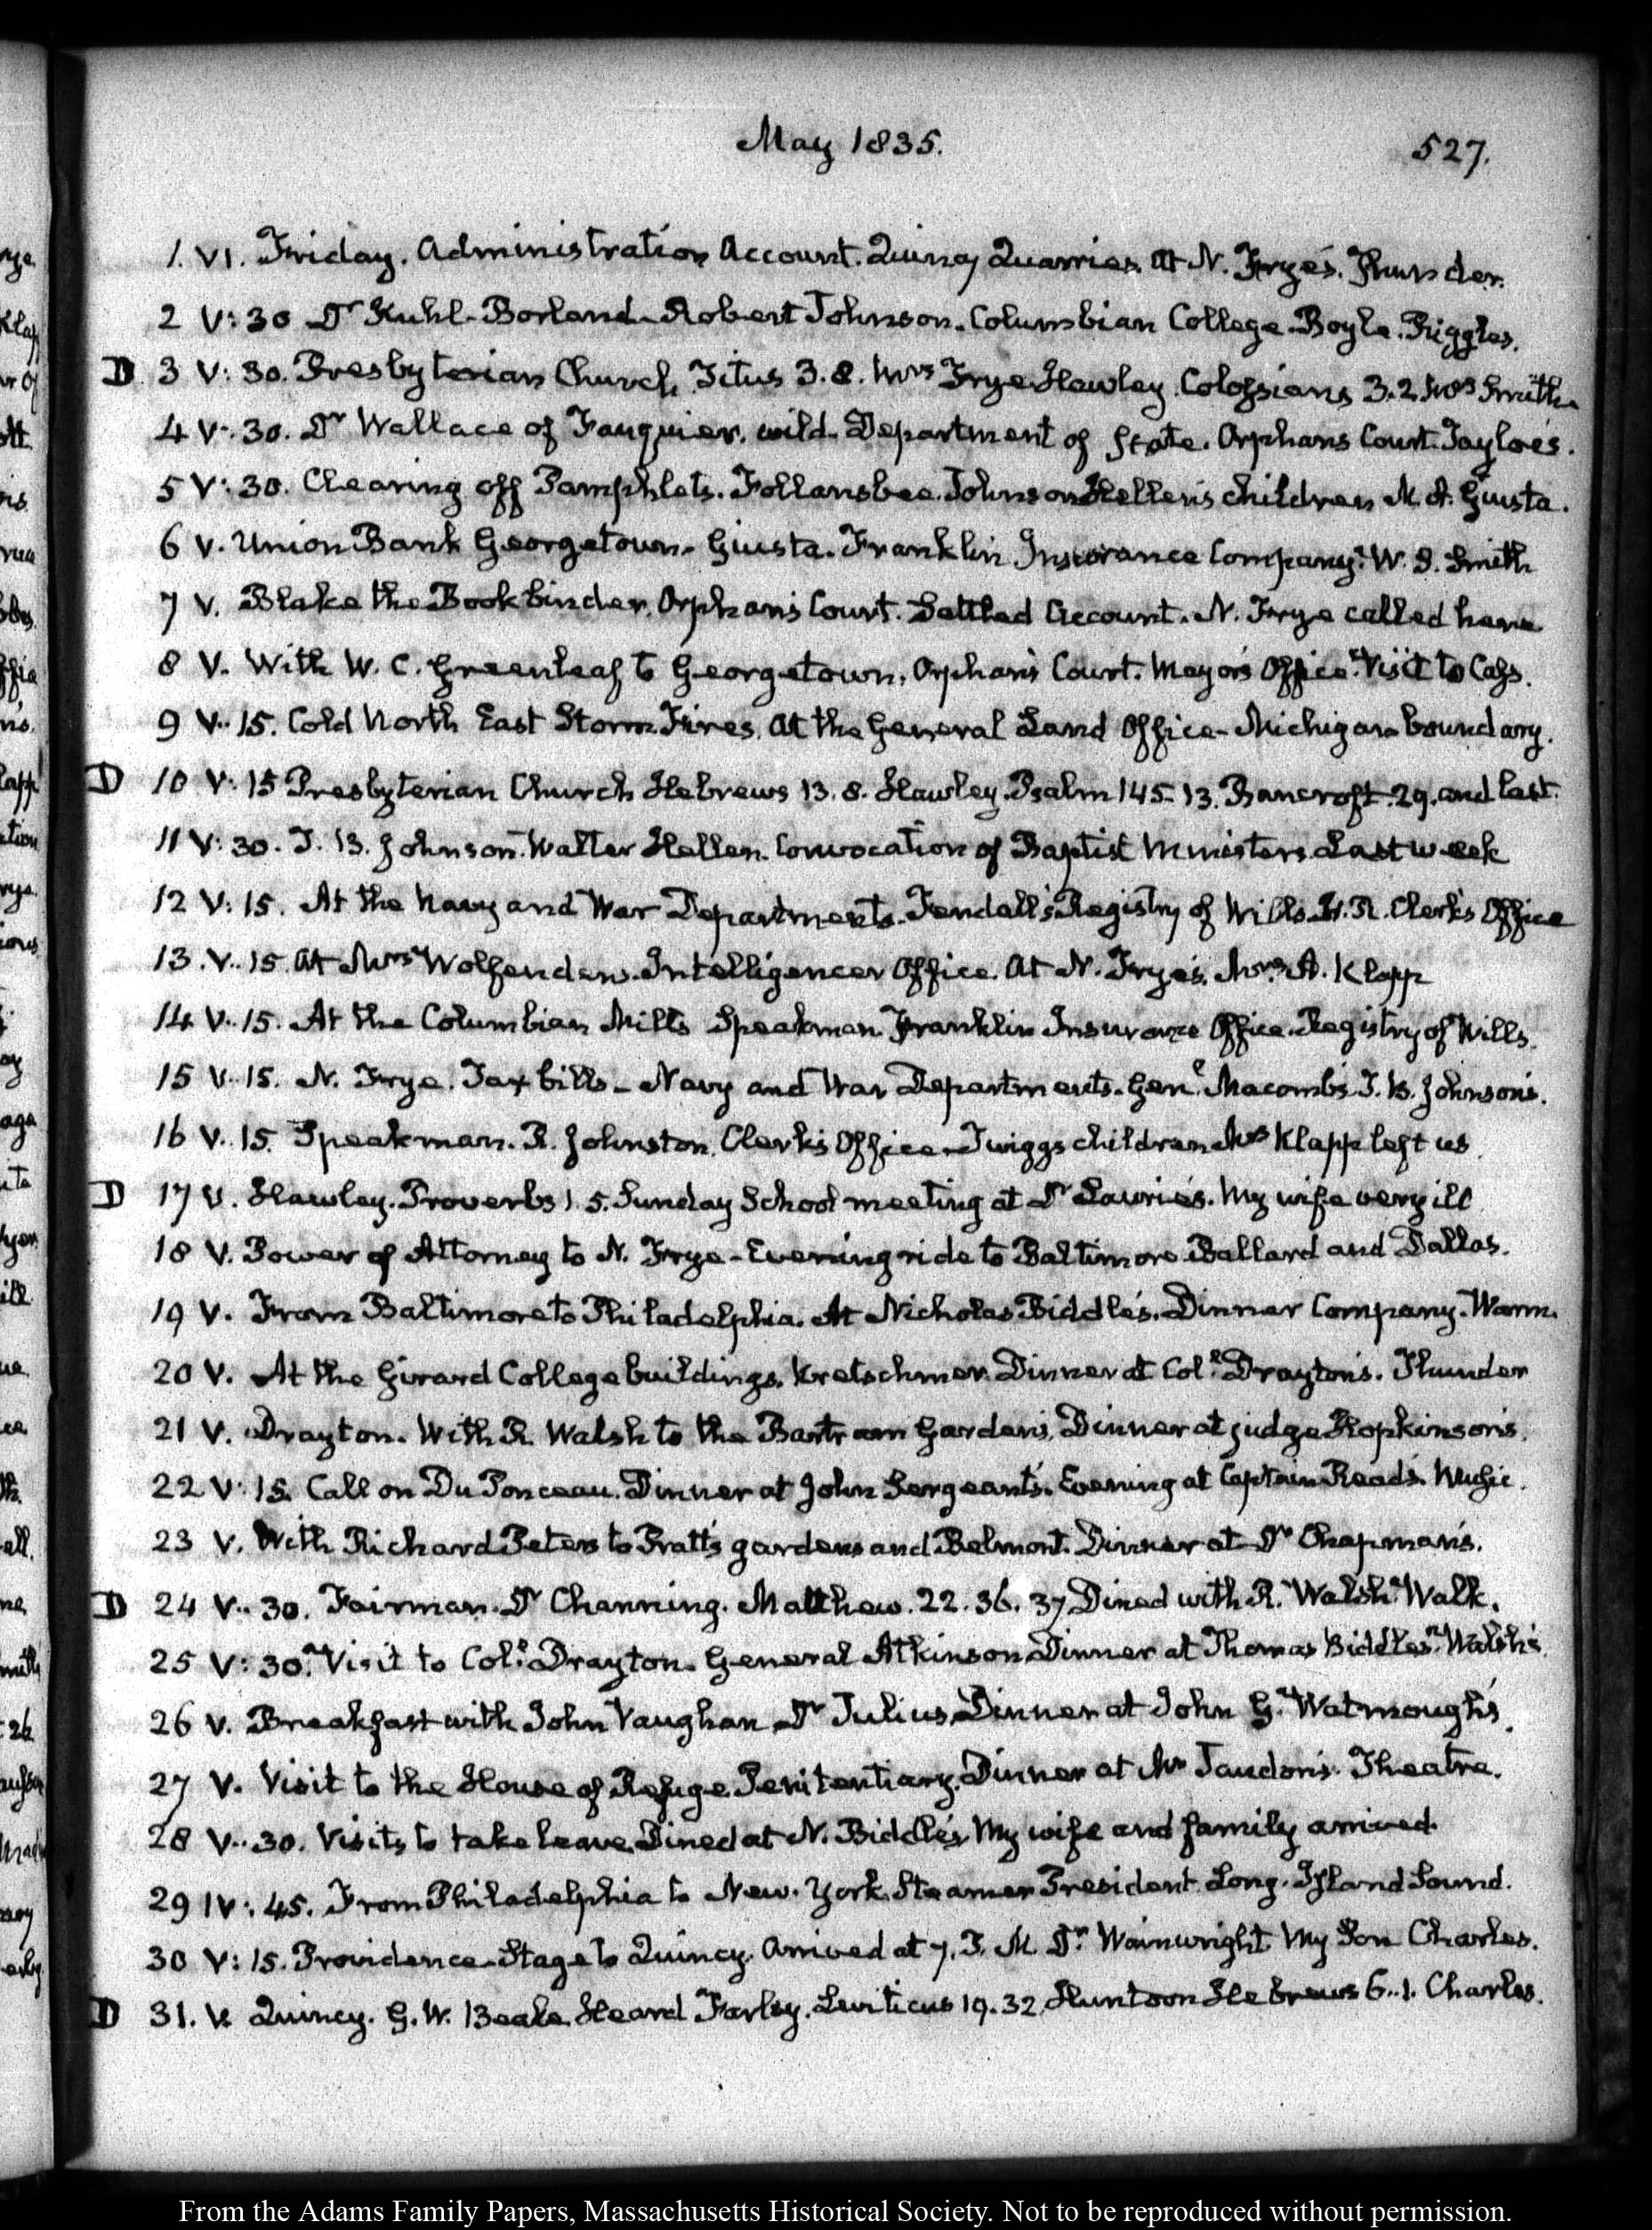 May 1835.
527.
1. VI. Friday. Administration Account. Quincy Quarries. At N. Frye's. Thunder.
2 V:30 Dr Kuhl. Borland. Robert Johnson. Columbian College. Boyle. Riggles.
D 3 V:30. Presbyterian Church. Titus 3.8. Mrs Frye Hawley. Colossians 3.2. Mrs Smith.
4 V:30. Dr Wallace of Fauquier. wild. Department of State. Orphans Court. Tayloe's.
5 V:30. Clearing off Pamphlets. Follansbee. Johnson Hellen's children M. A. Giusta.
6 V. Union Bank Georgetown. Giusta. Franklin Insurance Company. W. S. Smith
7 V. Blake the Bookbinder. Orphan's Court. Settled Account. N. Frye called here
8 V. With W. C. Greenleaf to Georgetown. Orphan's Court. Mayor's Office. Visit to Cass.
9 V..15. Cold North East Storm. Fires. At the General Land Office. Michigan boundary.
D 10 V:15 Presbyterian Church Hebrews 13.8. Hawley. Psalm 145.13. Bancroft. 29. and last.
11 V:30. T. B. Johnson. Walter Hellen. Convocation of Baptist Ministers. Last week
12 V:15. At the Navy and War Departments. Fendall's Registry of Wills. H.R. Clerk's Office
13. V..15. At Mrs Wolfenden. Intelligencer Office. At N. Frye's. Mrs A. Klapp
14 V..15. At the Columbian Mills Speakman. Franklin Insurance Office. Registry of Wills.
15 V..15. N. Frye. Tax bills. Navy and War Departments. Genl Macomb's. T. B. Johnson's.
16 V..15. Speakman. R. Johnston. Clerk's Office. Twiggs children Mrs Klapp left us.
D 17 V. Hawley. Proverbs 1.5. Sunday School meeting at Dr Laurie's. My wife very ill
18 V. Power of Attorney to N. Frye. Evening ride to Baltimore. Ballard and Dallas.
19 V. From Baltimore to Philadelphia. At Nicholas Biddle's. Dinner Company. Warm.
20 V. At the Girard College buildings. Kretschmer. Dinner at Coll Drayton's. Thunder
21 V. Drayton. With R. Walsh to the Bartram Garden's. Dinner at judge Hopkinson's.
22 V:15. Call on Du Ponceau. Dinner at John Sergeant's. Evening at Captain Read's. Music.
23 V. With Richard Peters to Pratt's gardens and Belmont. Dinner at Dr Chapman's.
D 24 V..30. Fairman. Dr Channing. Matthew. 22.36.37 Dined with R. Walsh. Walk.
25 V:30. Visit to Coll Drayton. General Atkinson. Dinner at Thomas Biddle's. Walsh's.
26 V. Breakfast with John Vaughan. Dr Julius. Dinner at John G. Watmough's.
27 V. Visit to the House of Refuge. Penitentiary. Dinner at Mr Jaudon's. Theatre.
28 V..30. Visits to take leave. Dined at N. Biddle's. My wife and family arrived.
29 IV:45. From Philadelphia to New. York. Steamer President. Long. Island Sound.
30 V:15. Providence. Stage to Quincy. Arrived at 7. P. M. Dr Wainwright. My Son Charles.
D 31. V. Quincy. G. W. Beale. Heard Farley. Leviticus 19.32. Huntoon Hebrews 6..1. Charles.
From the Adams Family Papers, Massachusetts Historical Society. Not to be reproduced without permission.